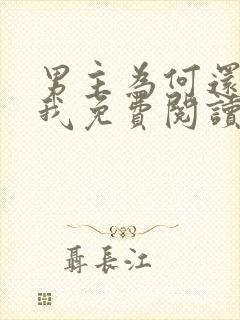 男主為何還
我免費閱讀
聶長江